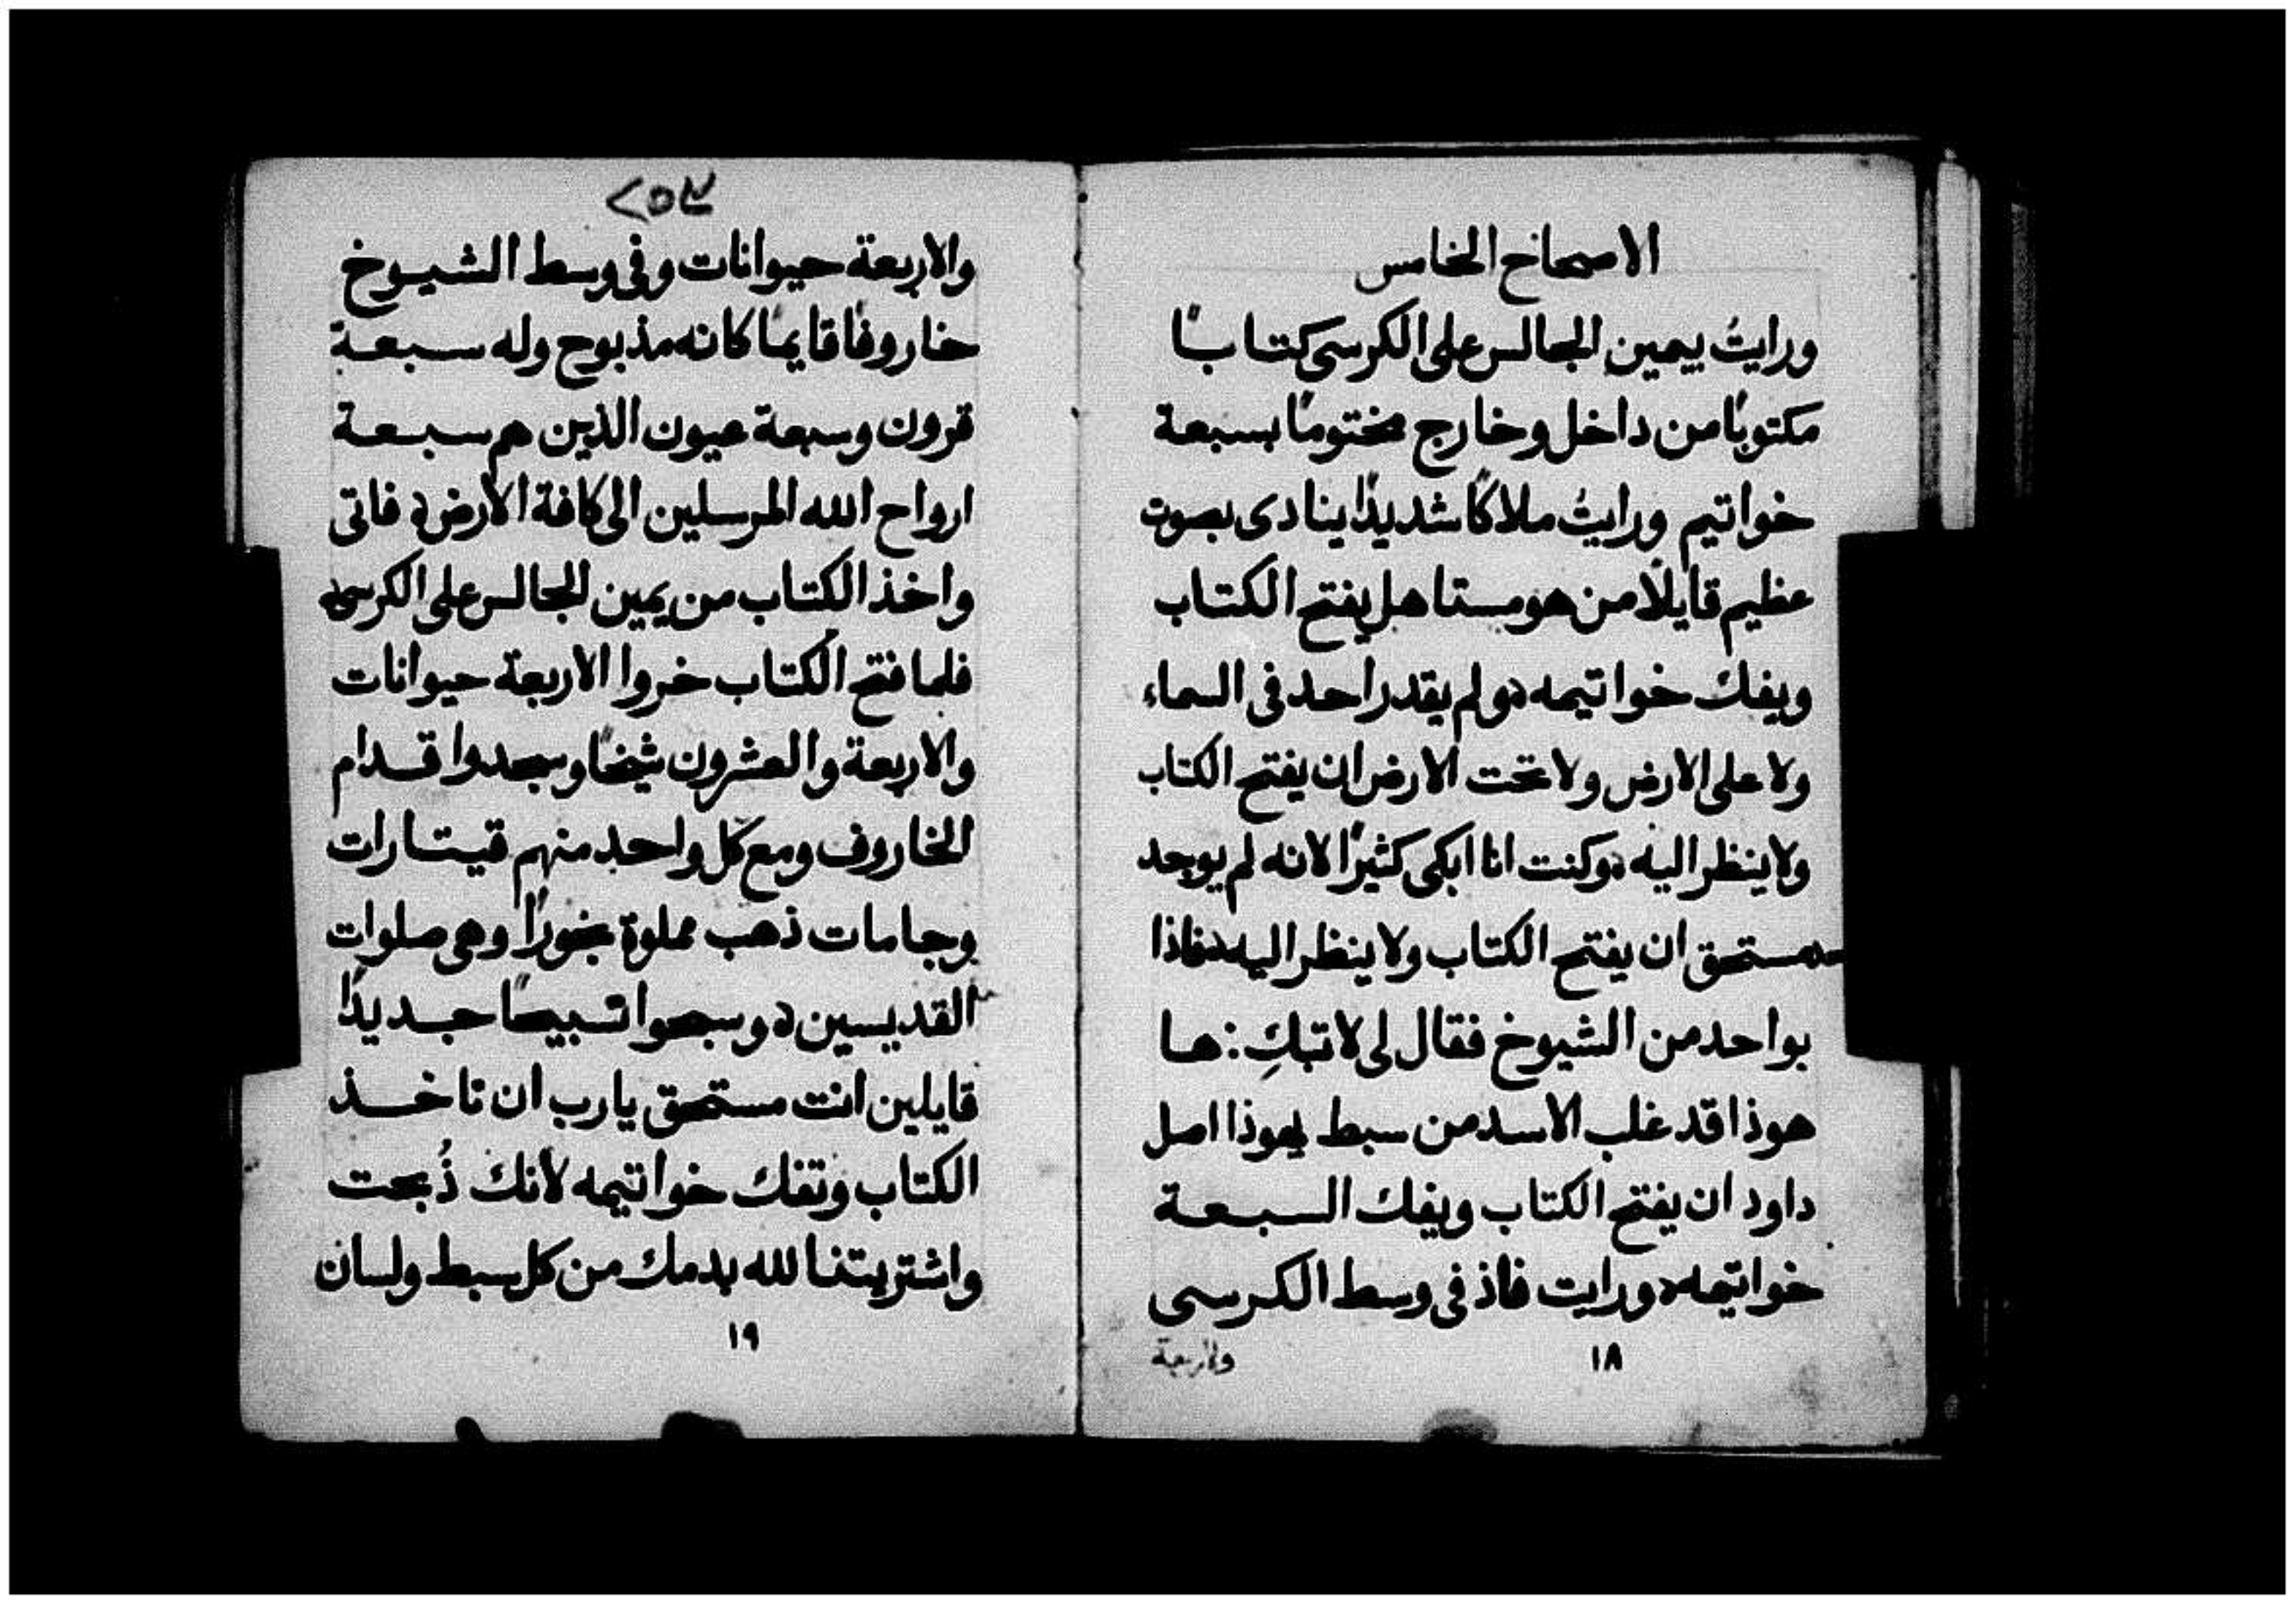 الاصحاح الخامس
ورايتُ بيمين الجالس على الكرسى كتابًا
مكتوبًا من داخل وخارج مختومًا بسبعة
خواتيم ورايتُ ملاكًا شديدًا ينادى بصوت
عظيم قايلًا من هو مستاهل يفتح الكتاب
ويفك خواتيمه ولم يقدر احد فى السماء
ولا على الارض ولا تحت الارض ان يفتح الكتاب
ولا ينظر اليه وكنت انا ابكى كثيرًا لانه لم يوجد
مستحق ان يفتح الكتاب ولا ينظر اليه فاذا
بواحد من الشيوخ فقال لى لا تبكِ: ها
هوذا قد غلب الاسد من سبط يهوذا اصل
داود ان يفتح الكتاب ويفك السبعة
خواتيمه ورايت فاذ فى وسط الكرسى
والاربعة
١٨
والاربعة حيوانات وفى وسط الشيوخ
خاروفًا قايمًا كانه مذبوح وله سبعة
قرون وسبعة عيون الذين هم سبعة
ارواح الله المرسلين الى كافة الارض فاتى
واخذ الكتاب من يمين الجالس على الكرسى
فلما فتح الكتاب خروا الاربعة حيوانات
والاربعة والعشرون شيخًا وسجدوا قدام
الخاروف ومع كل واحد منهم قيتارات
وجامات ذهب مملوة بخورًا وهى صلوات
القديسين وسبحوا تسبيحًا جديدًا
قايلين انت مستحق يارب ان تاخذ
الكتاب وتفك خواتيمه لأنك ذُبحت
واشتريتنا لله بدمك من كل سبط ولسان
١٩